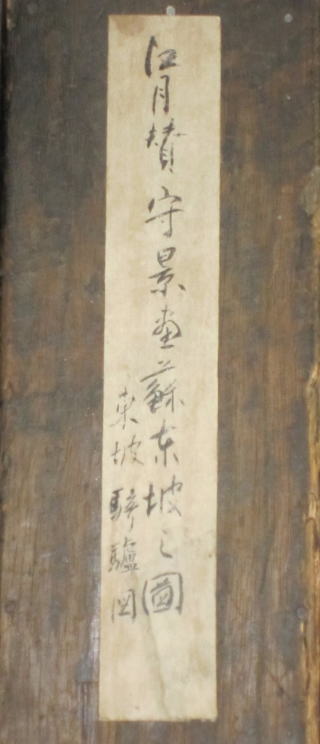 江月賛守景畫蘇東坡之圖
東坡騎驢図